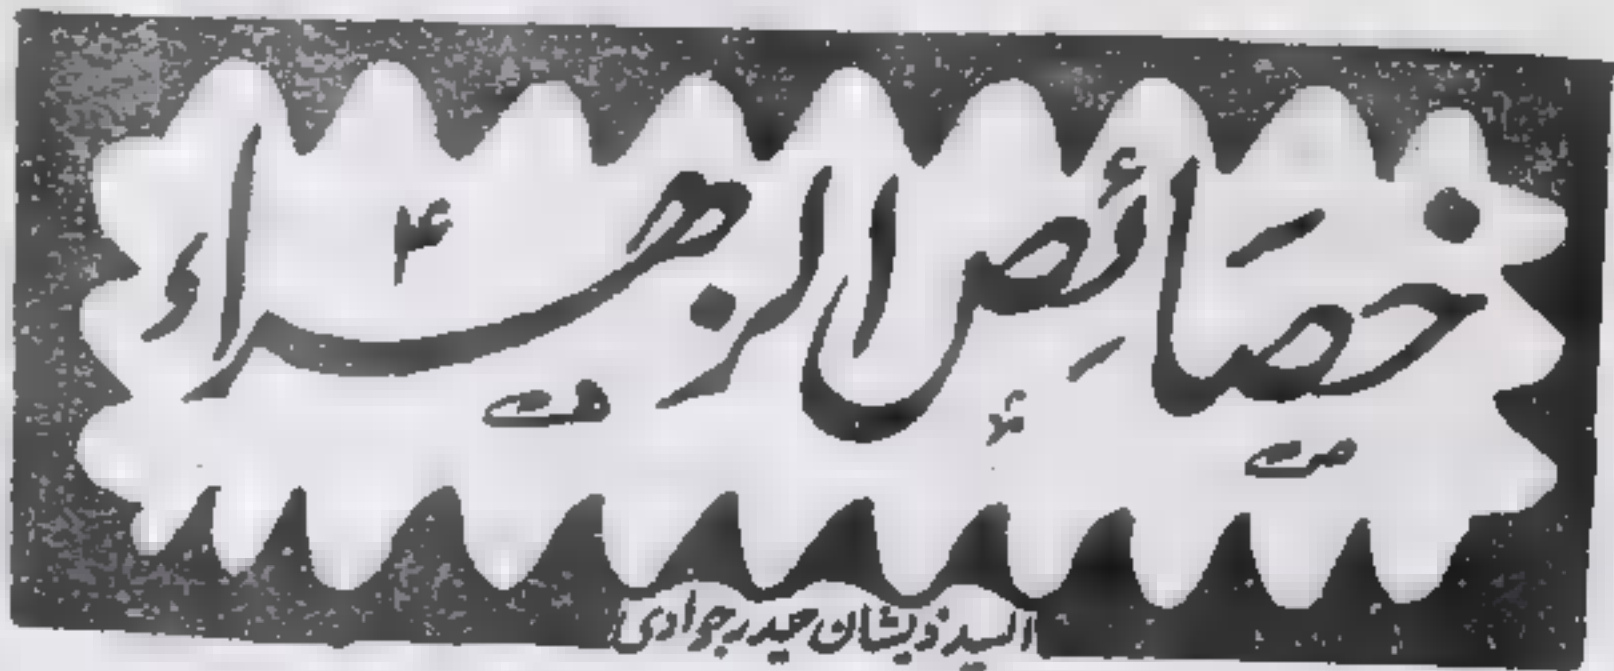 خَصَائِصِ الزهراءؑ
السید ذیشان حیدر جوادی